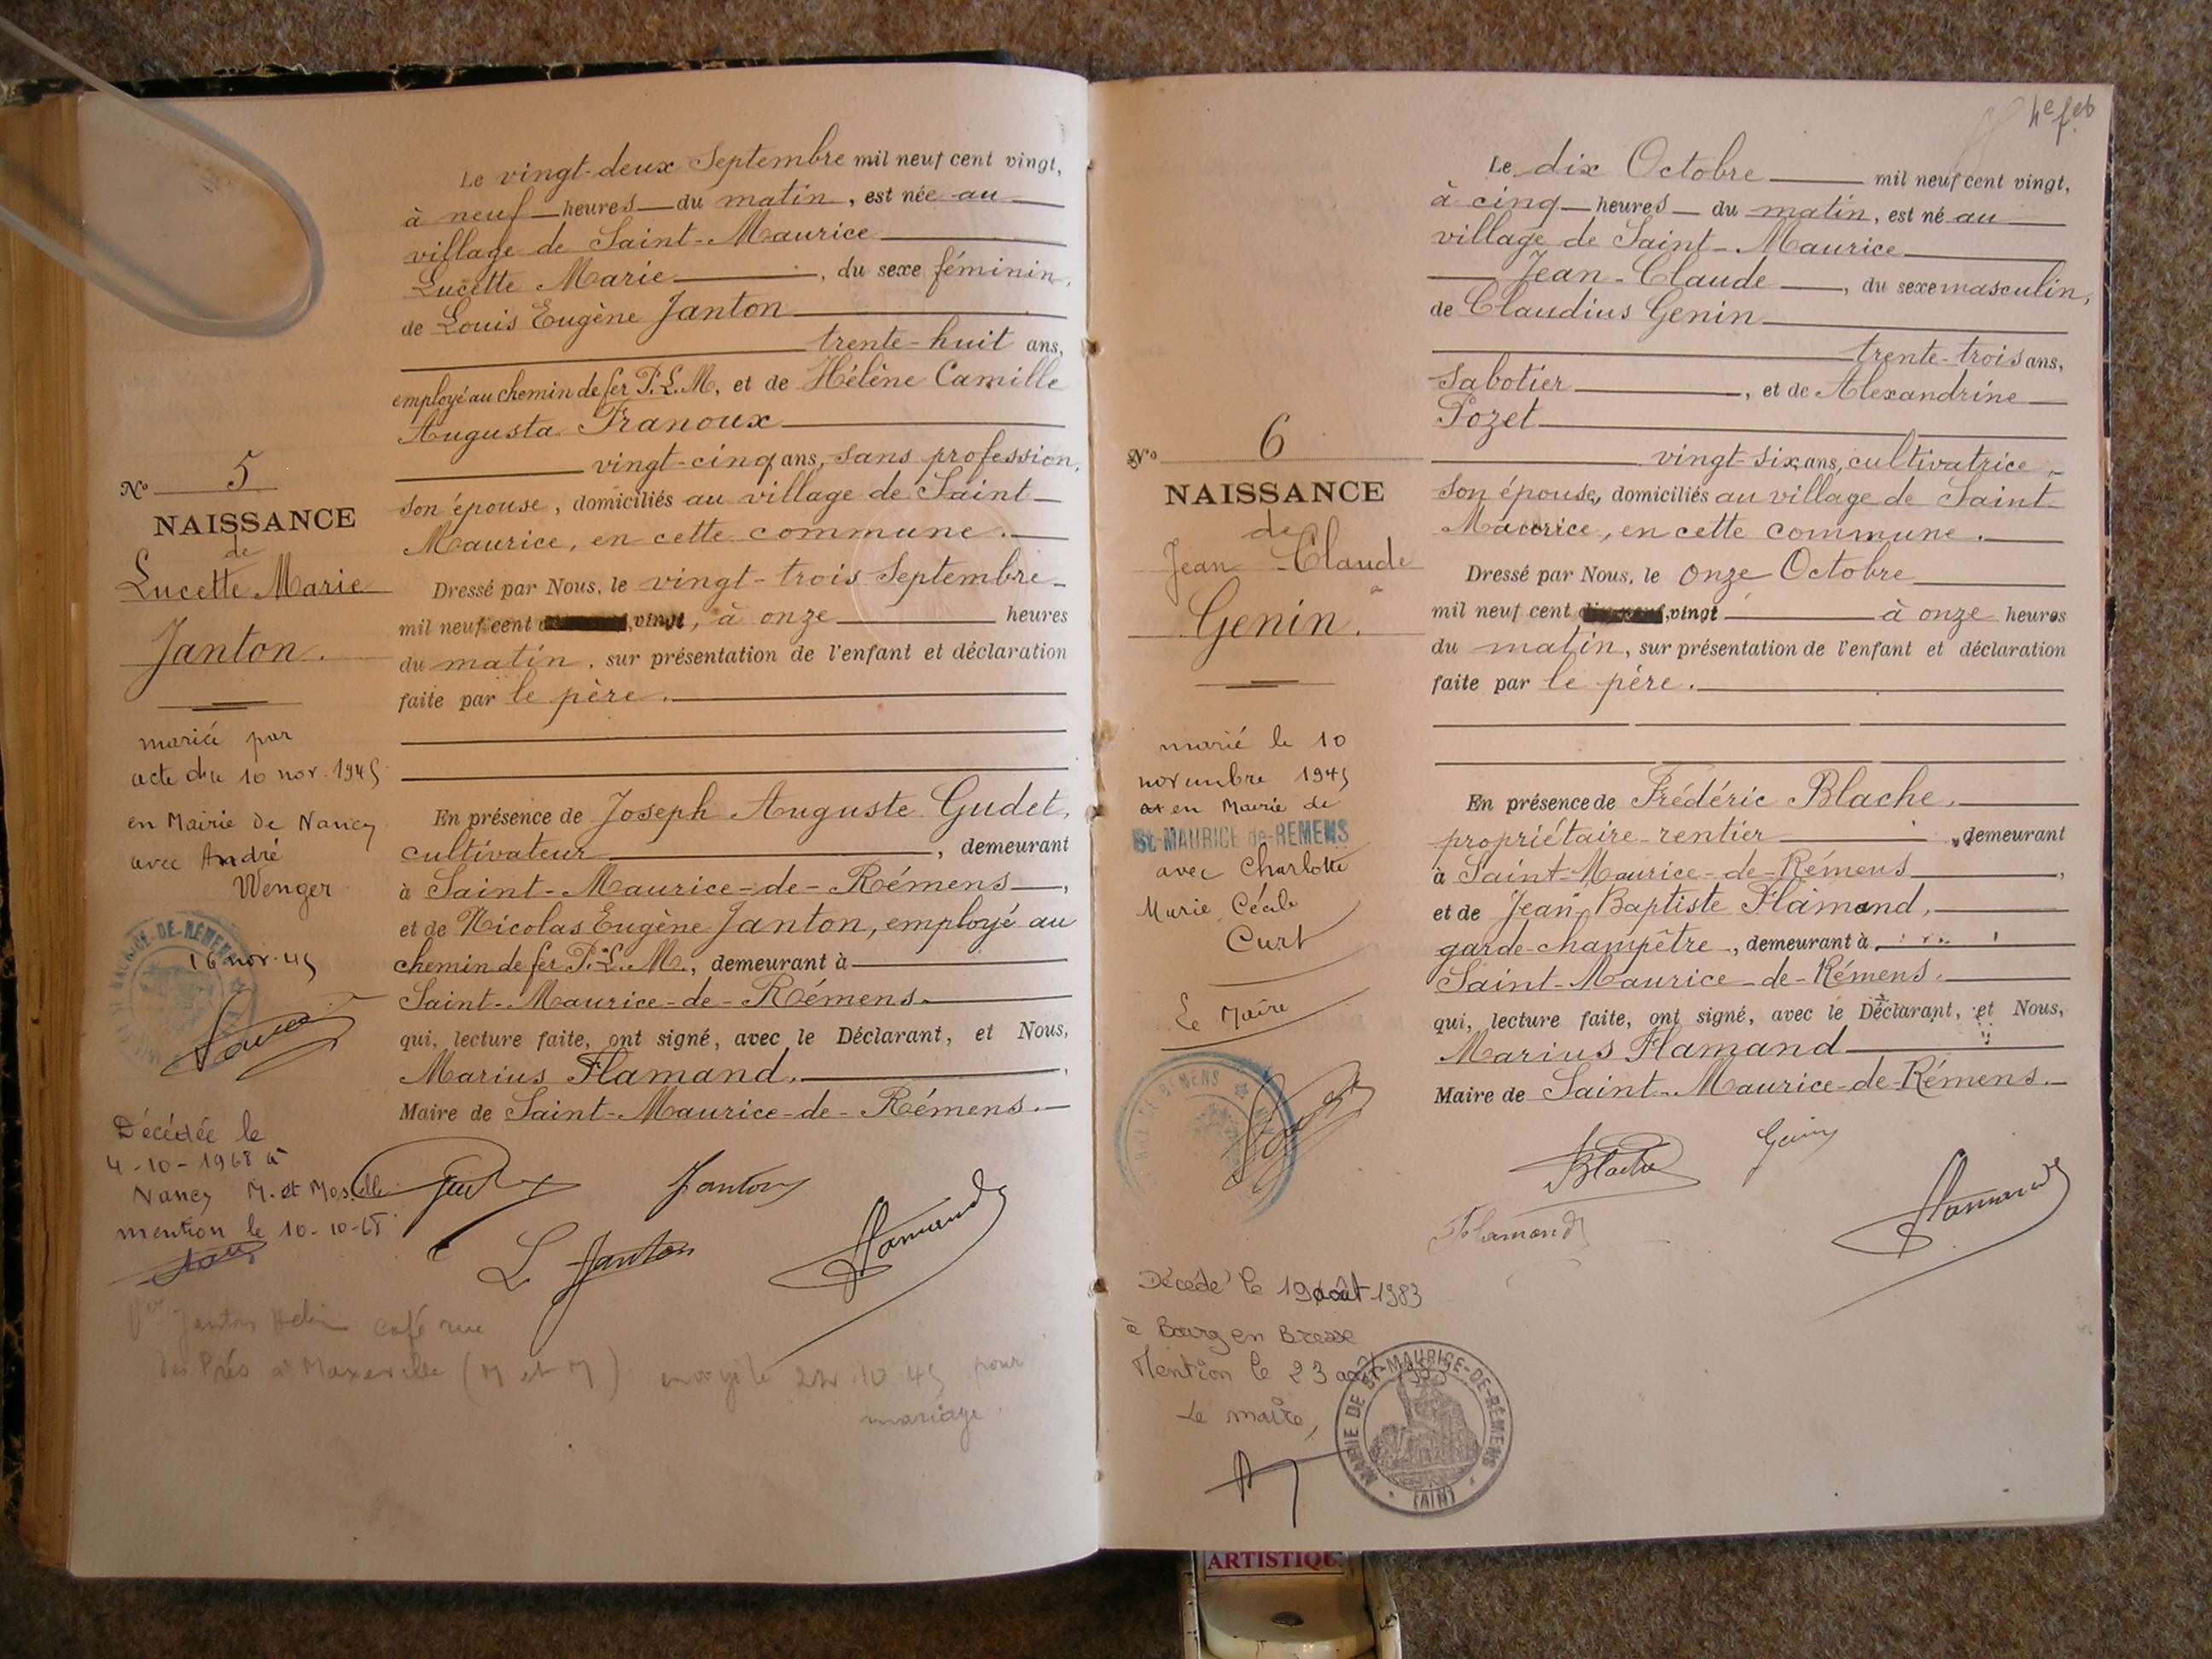 Le vingt-deux Septembre mil neuf cent vingt,
à neuf heures du matin, est née au
village de Saint-Maurice
Lucette Marie, du sexe féminin,
de Louis Eugène Janton
trente-huit ans,
employé au chemin de fer P.L.M, et de Hélène Camille
Augusta Franoux
vingt-cinq ans, sans profession,
son épouse, domiciliés au village de Saint-
Maurice, en cette commune.
Dressé par Nous, le vingt-trois Septembre
mil neuf cent vingt, à onze heures
du matin, sur présentation de l'enfant et déclaration
faite par le père.
En présence de Joseph Auguste Gudet,
cultivateur, demeurant
à Saint-Maurice-de-Rémens,
et de Nicolas Eugène Janton, employé au
chemin de fer P.L.M., demeurant à
Saint-Maurice-de-Rémens.
qui, lecture faite, ont signé, avec le Déclarant, et Nous,
Marius Flamand.
Maire de Saint-Maurice-de-Rémens.
Janton
L Janton
Flamand
No 5
NAISSANCE
de
Lucette Marie
Janton.
mariée par
acte du 10 nov. 1945
en Mairie de Nancy
avec André
Wenger
16 nov. 45
Décédée le
4-10-1968 à
Nancy M. et Moselle
mention le 10-10-68
Janton café rue
des Prés à Maxeville (M et M) envoyé le 22.10.45 pour
mariage.
4e fet
Le dix Octobre mil neuf cent vingt,
à cinq heures du matin, est né au
village de Saint-Maurice
Jean-Claude, du sexe masculin,
de Claudius Genin
trente-trois ans,
sabotier, et de Alexandrine
Pozet
vingt-six ans, cultivatrice,
son épouse, domiciliés au village de Saint-
Maurice, en cette commune.
Dressé par Nous, le onze Octobre
mil neuf cent vingt à onze heures
du matin, sur présentation de l'enfant et déclaration
faite par le père.
En présence de Frédéric Blache,
propriétaire-rentier, demeurant
à Saint-Maurice-de-Rémens,
et de Jean-Baptiste Flamand,
garde-champêtre, demeurant à
Saint-Maurice-de-Rémens.
qui, lecture faite, ont signé, avec le Déclarant, et Nous,
Marius Flamand
Maire de Saint-Maurice-de-Rémens.
Blache
Genin
Flamand
Flamand
No 6
NAISSANCE
de
Jean-Claude
Genin.
marié le 10
novembre 1945
en Mairie de
St-MAURICE-de-REMENS
avec Charlotte
Marie Cécile
Curt
Le Maire
Décédé le 19 août 1983
à Bourg en Bresse
Mention le 23 août 1983
Le maire,
MAIRIE DE ST-MAURICE-DE-RÉMENS
(AIN)
ARTISTIQU